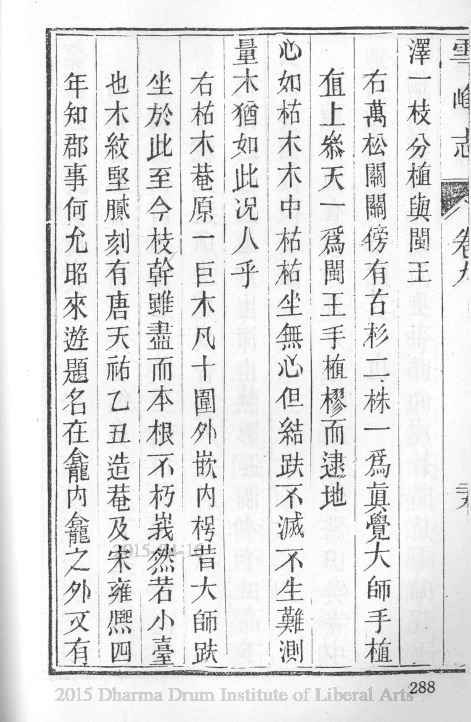 雪峰志 卷九
澤一枝分植與閩王
右萬松關關傍有古杉二株一爲眞覺大師手植
值上叅天一爲閩王手植樛而逮地
心如祐木木中祐祐坐無心但結趺不滅不生難測
量木猶如此况人乎
右祐木菴原一巨木凡十圍外嵌内楞昔大師趺
坐於此至今枝幹雖盡而本根不朽峩然若小臺
也木紋堅膩刻有唐天祐乙丑造菴及宋雍熈四
年知郡事何允昭來遊題名在龕内龕之外又有
288
2015 Dharma Drum Institute of Liberal Arts